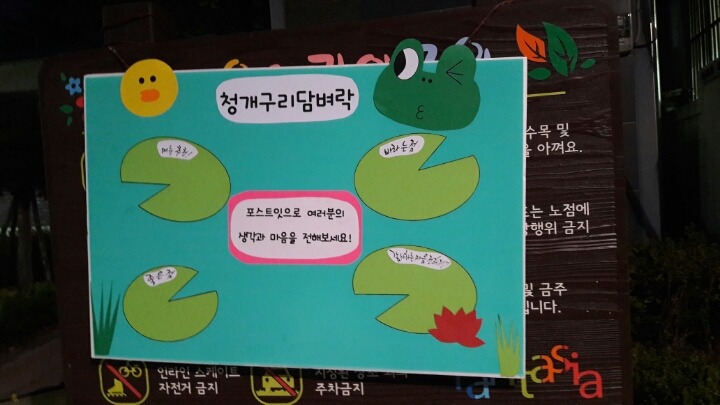 청개구리담벼락
바라는점
포스트잇으로 여러분의
생각과 마음을 전해보세요!
좋은점
수목 및
아껴요.
노점에
행위 금지
및 금주
입니다.
인라인 스케이트
자전거 금지
주차금지
fantasia